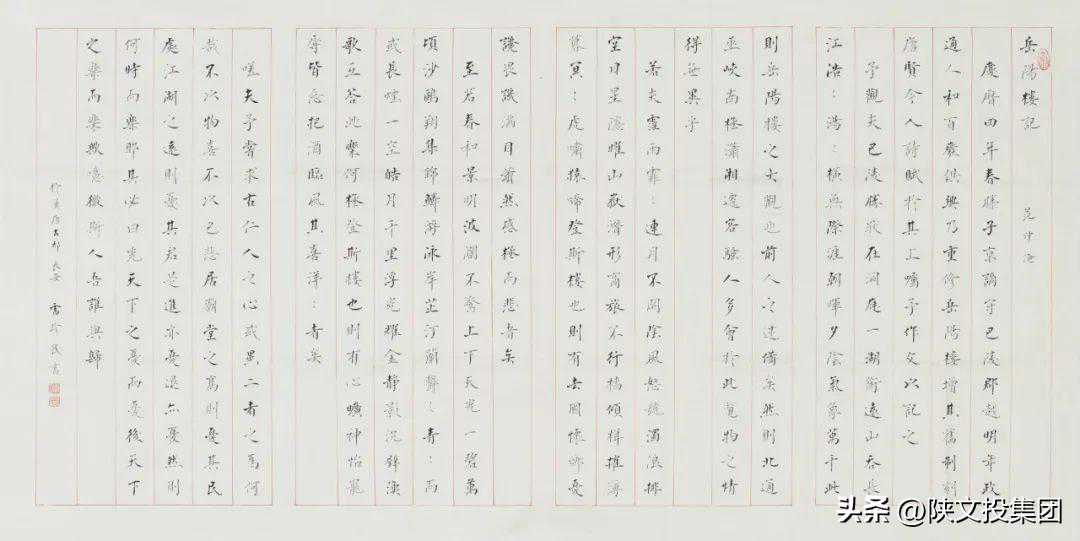 岳陽樓記 范仲淹
慶曆四年春滕子京謫守巴陵郡越明年政
通人和百廢俱興乃重修岳陽樓增其舊制刻
唐賢今人詩賦於其上囑予作文以記之
予觀夫巴陵勝狀在洞庭一湖銜遠山吞長
江浩:湯:橫無際涯朝暉夕陰氣象萬千此
則岳陽樓之大觀也前人之述備矣然則北通
巫峽南極瀟湘遷客騷人多會於此覽物之情
得無異乎
若夫霪雨霏:連月不開陰風怒號濁浪排
空日星隱曜山嶽潛形商旅不行檣傾楫摧薄
暮冥:虎嘯猿啼登斯樓也則有去國懷鄉憂
讒畏譏滿目蕭然感極而悲者矣
至若春和景明波瀾不驚上下天光一碧萬
頃沙鷗翔集錦鱗游泳岸芷汀蘭郁:青:而
或長煙一空皓月千里浮光耀金靜影沉璧漁
歌互答此樂何極登斯樓也則有心曠神怡寵
辱皆忘把酒臨風其喜洋:者矣
嗟夫予嘗求古仁人之心或異二者之為何
哉不以物喜不以己悲居廟堂之高則憂其民
處江湖之遠則憂其君是進亦憂退亦憂然則
何時而樂耶其必曰先天下之憂而憂後天下
之樂而樂歟噫微斯人吾誰與歸
長安 雷 書
头条 @陕文投集团